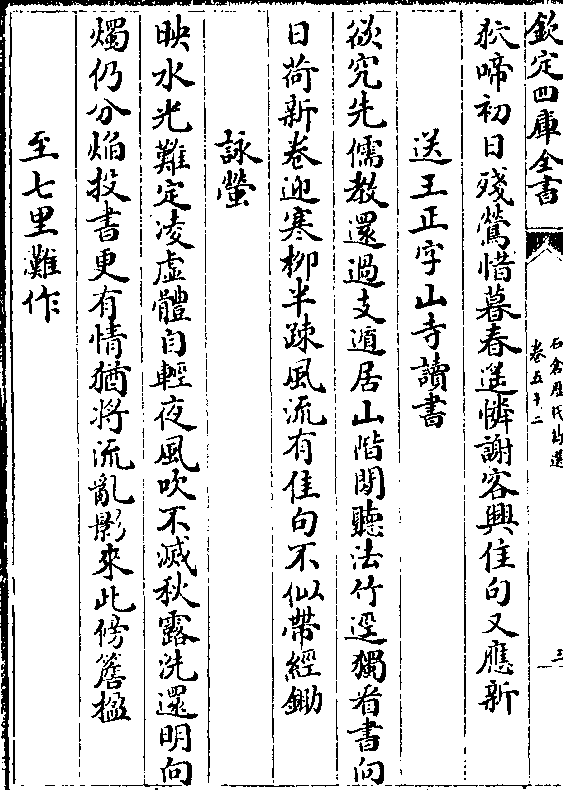 欽定四庫全書
石倉歷代詩選
卷五十二
三
狖啼初日殘鶯惜暮春遥憐謝客興佳句又應新
送王正字山寺讀書
欲究先儒教還過支遁居山階閒聽法竹逕獨看書向
日荷新卷迎寒柳半疎風流有佳句不似帶經鋤
詠螢
映水光難定凌虛體自輕夜風吹不滅秋露洗還明向
燭仍分焰投書更有情猶將流亂影來此傍簷楹
至七里灘作